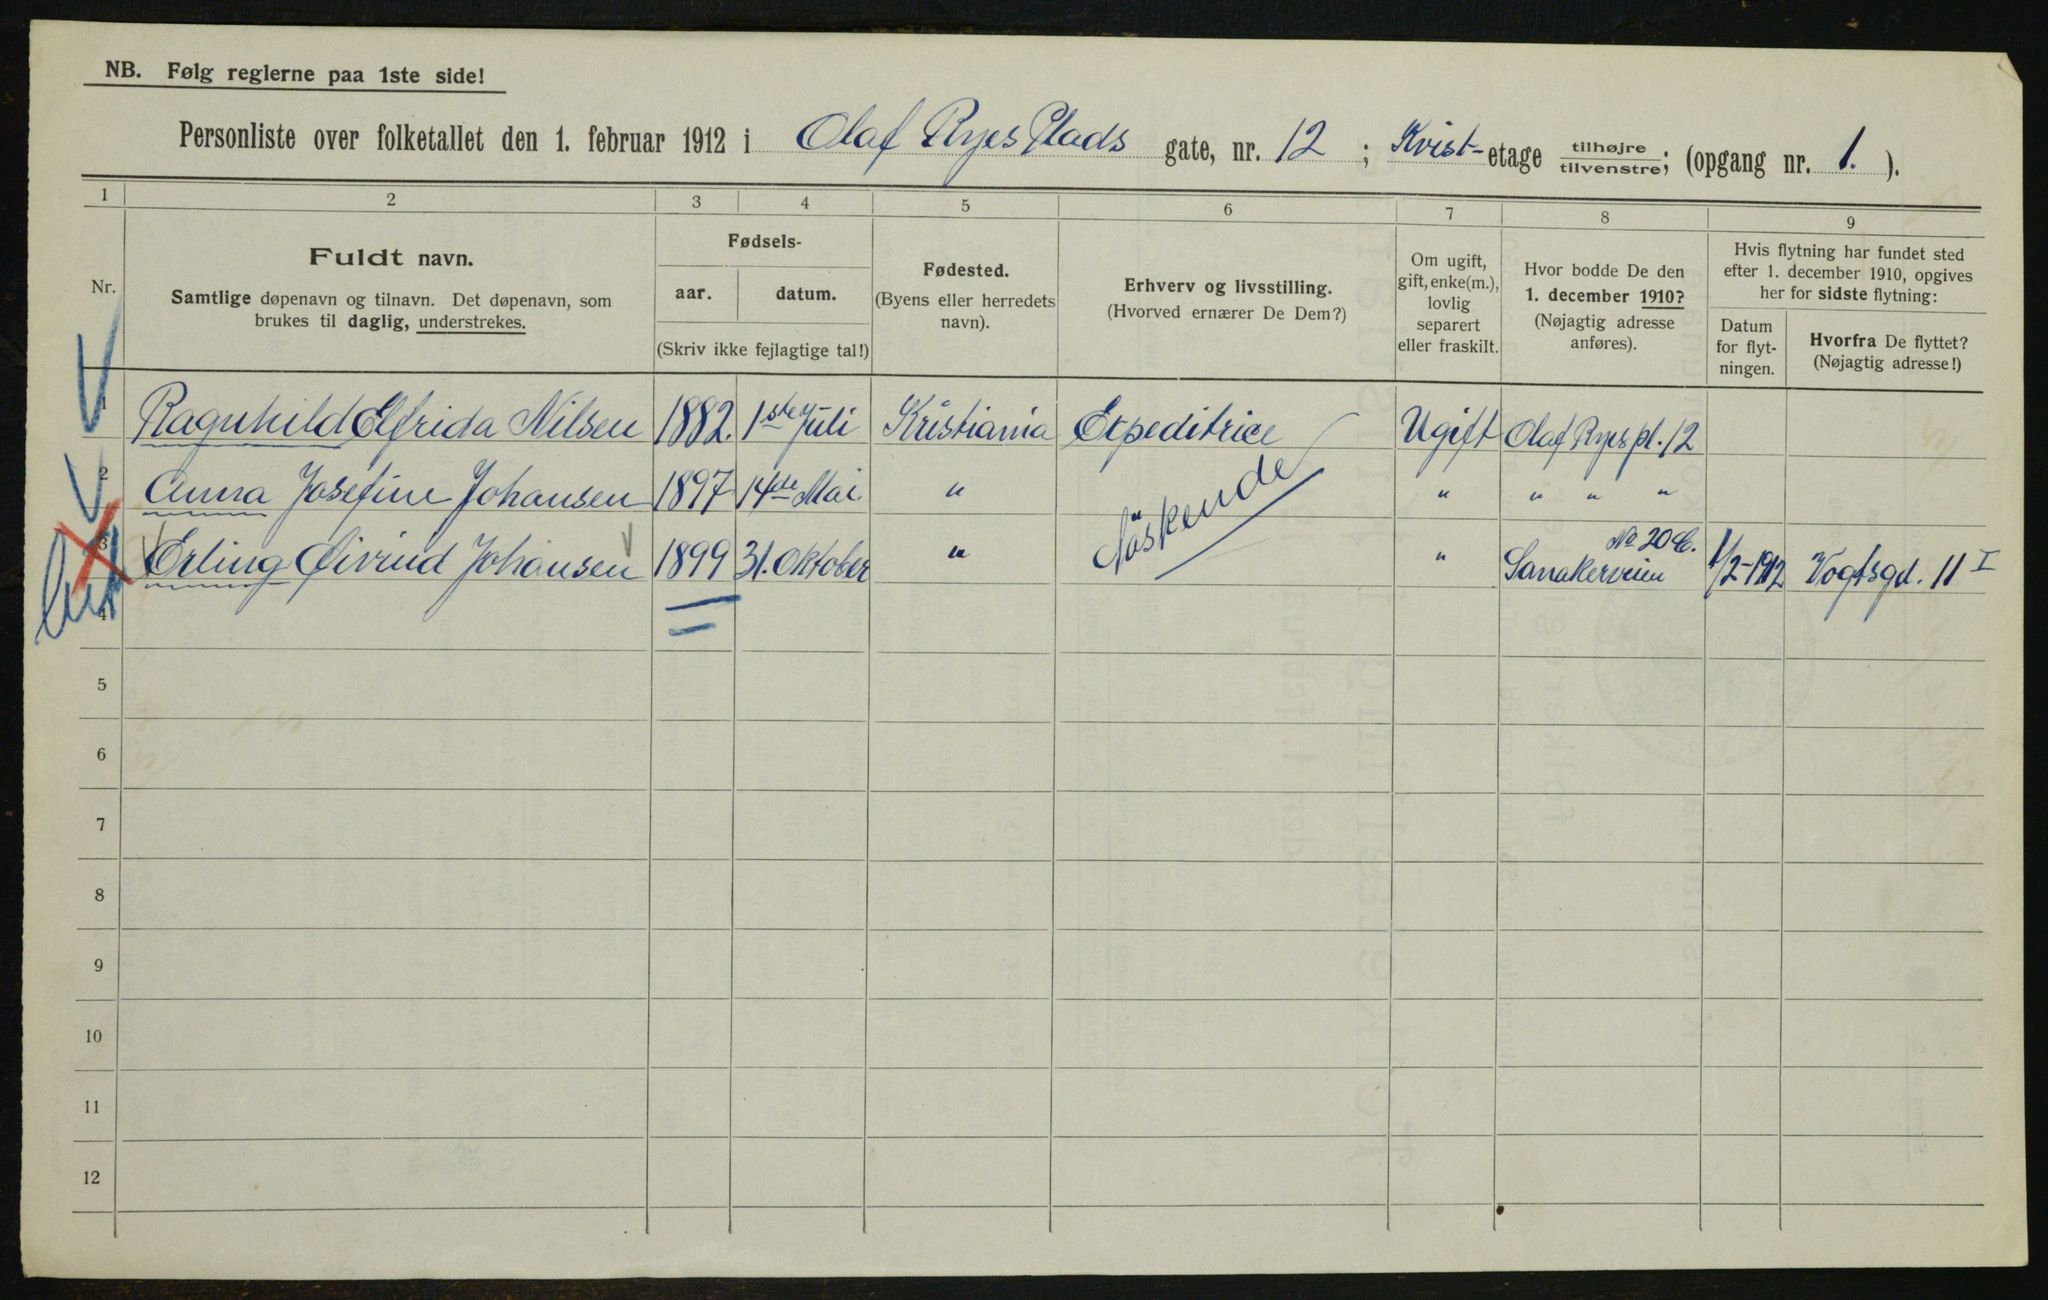 NB. Følg reglerne paa 1ste side!
Personliste over folketallet den 1. februar 1912 i Olaf Ryes Plads gate, nr. 12 ; Kvist-etage tilhøjre/tilvenstre; (opgang nr. 1. ).
1 2 3 4 5 6 7 8 9
Nr.
Fuldt navn.
Samtlige døpenavn og tilnavn. Det døpenavn, som
brukes til daglig, understrekes.
Fødsels-
aar. datum.
(Skriv ikke fejlagtige tal!)
Fødested.
(Byens eller herredets
navn).
Erhverv og livsstilling.
(Hvorved ernærer De Dem?)
Om ugift,
gift, enke(m.),
lovlig
separert
eller fraskilt.
Hvor bodde De den
1. december 1910?
(Nøjagtig adresse
anføres).
Hvis flytning har fundet sted
efter 1. december 1910, opgives
her for sidste flytning:
Datum
for flyt-
ningen.
Hvorfra De flyttet?
(Nøjagtig adresse!)
1 Ragnhild Elfrida Nilsen 1882. 1ste Juli Kristiania Expeditrice Ugift Olaf Ryes pl. 12
2 Anna Josefine Johansen 1897 14de Mai " " " " "
3 Erling Øivind Johansen 1899 31. Oktober " " Sanakerveien No 20 C. 1/2-1912 Vogtsgd. 11 I
4
5
6
7
8
9
10
11
12